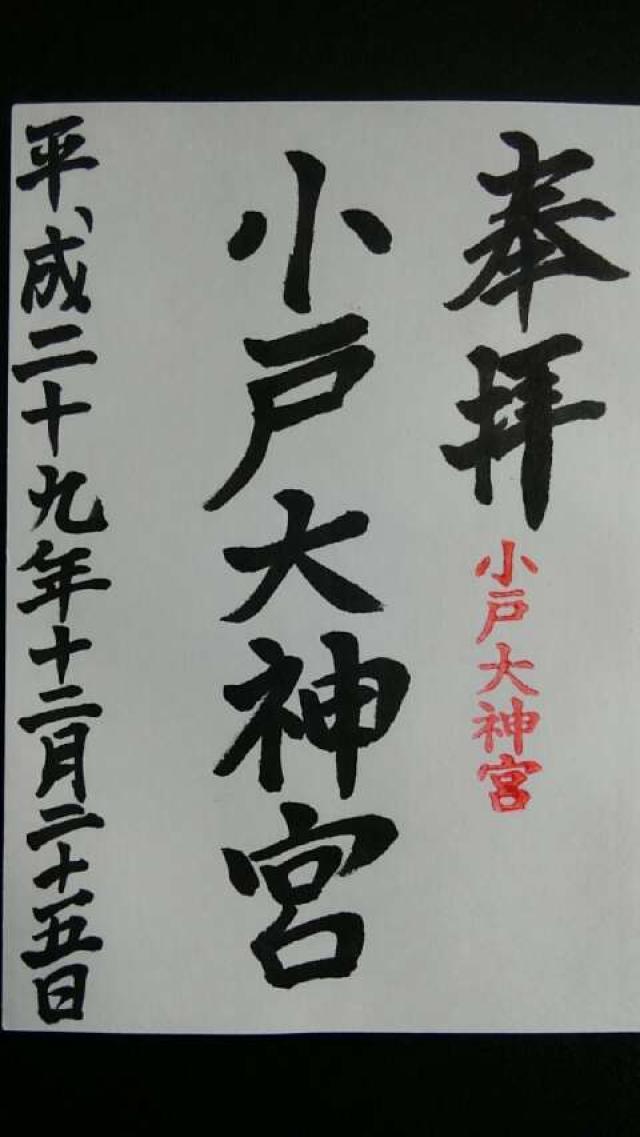 奉拝
小戸大神宮
小戸大神宮
平成二十九年十二月二十五日